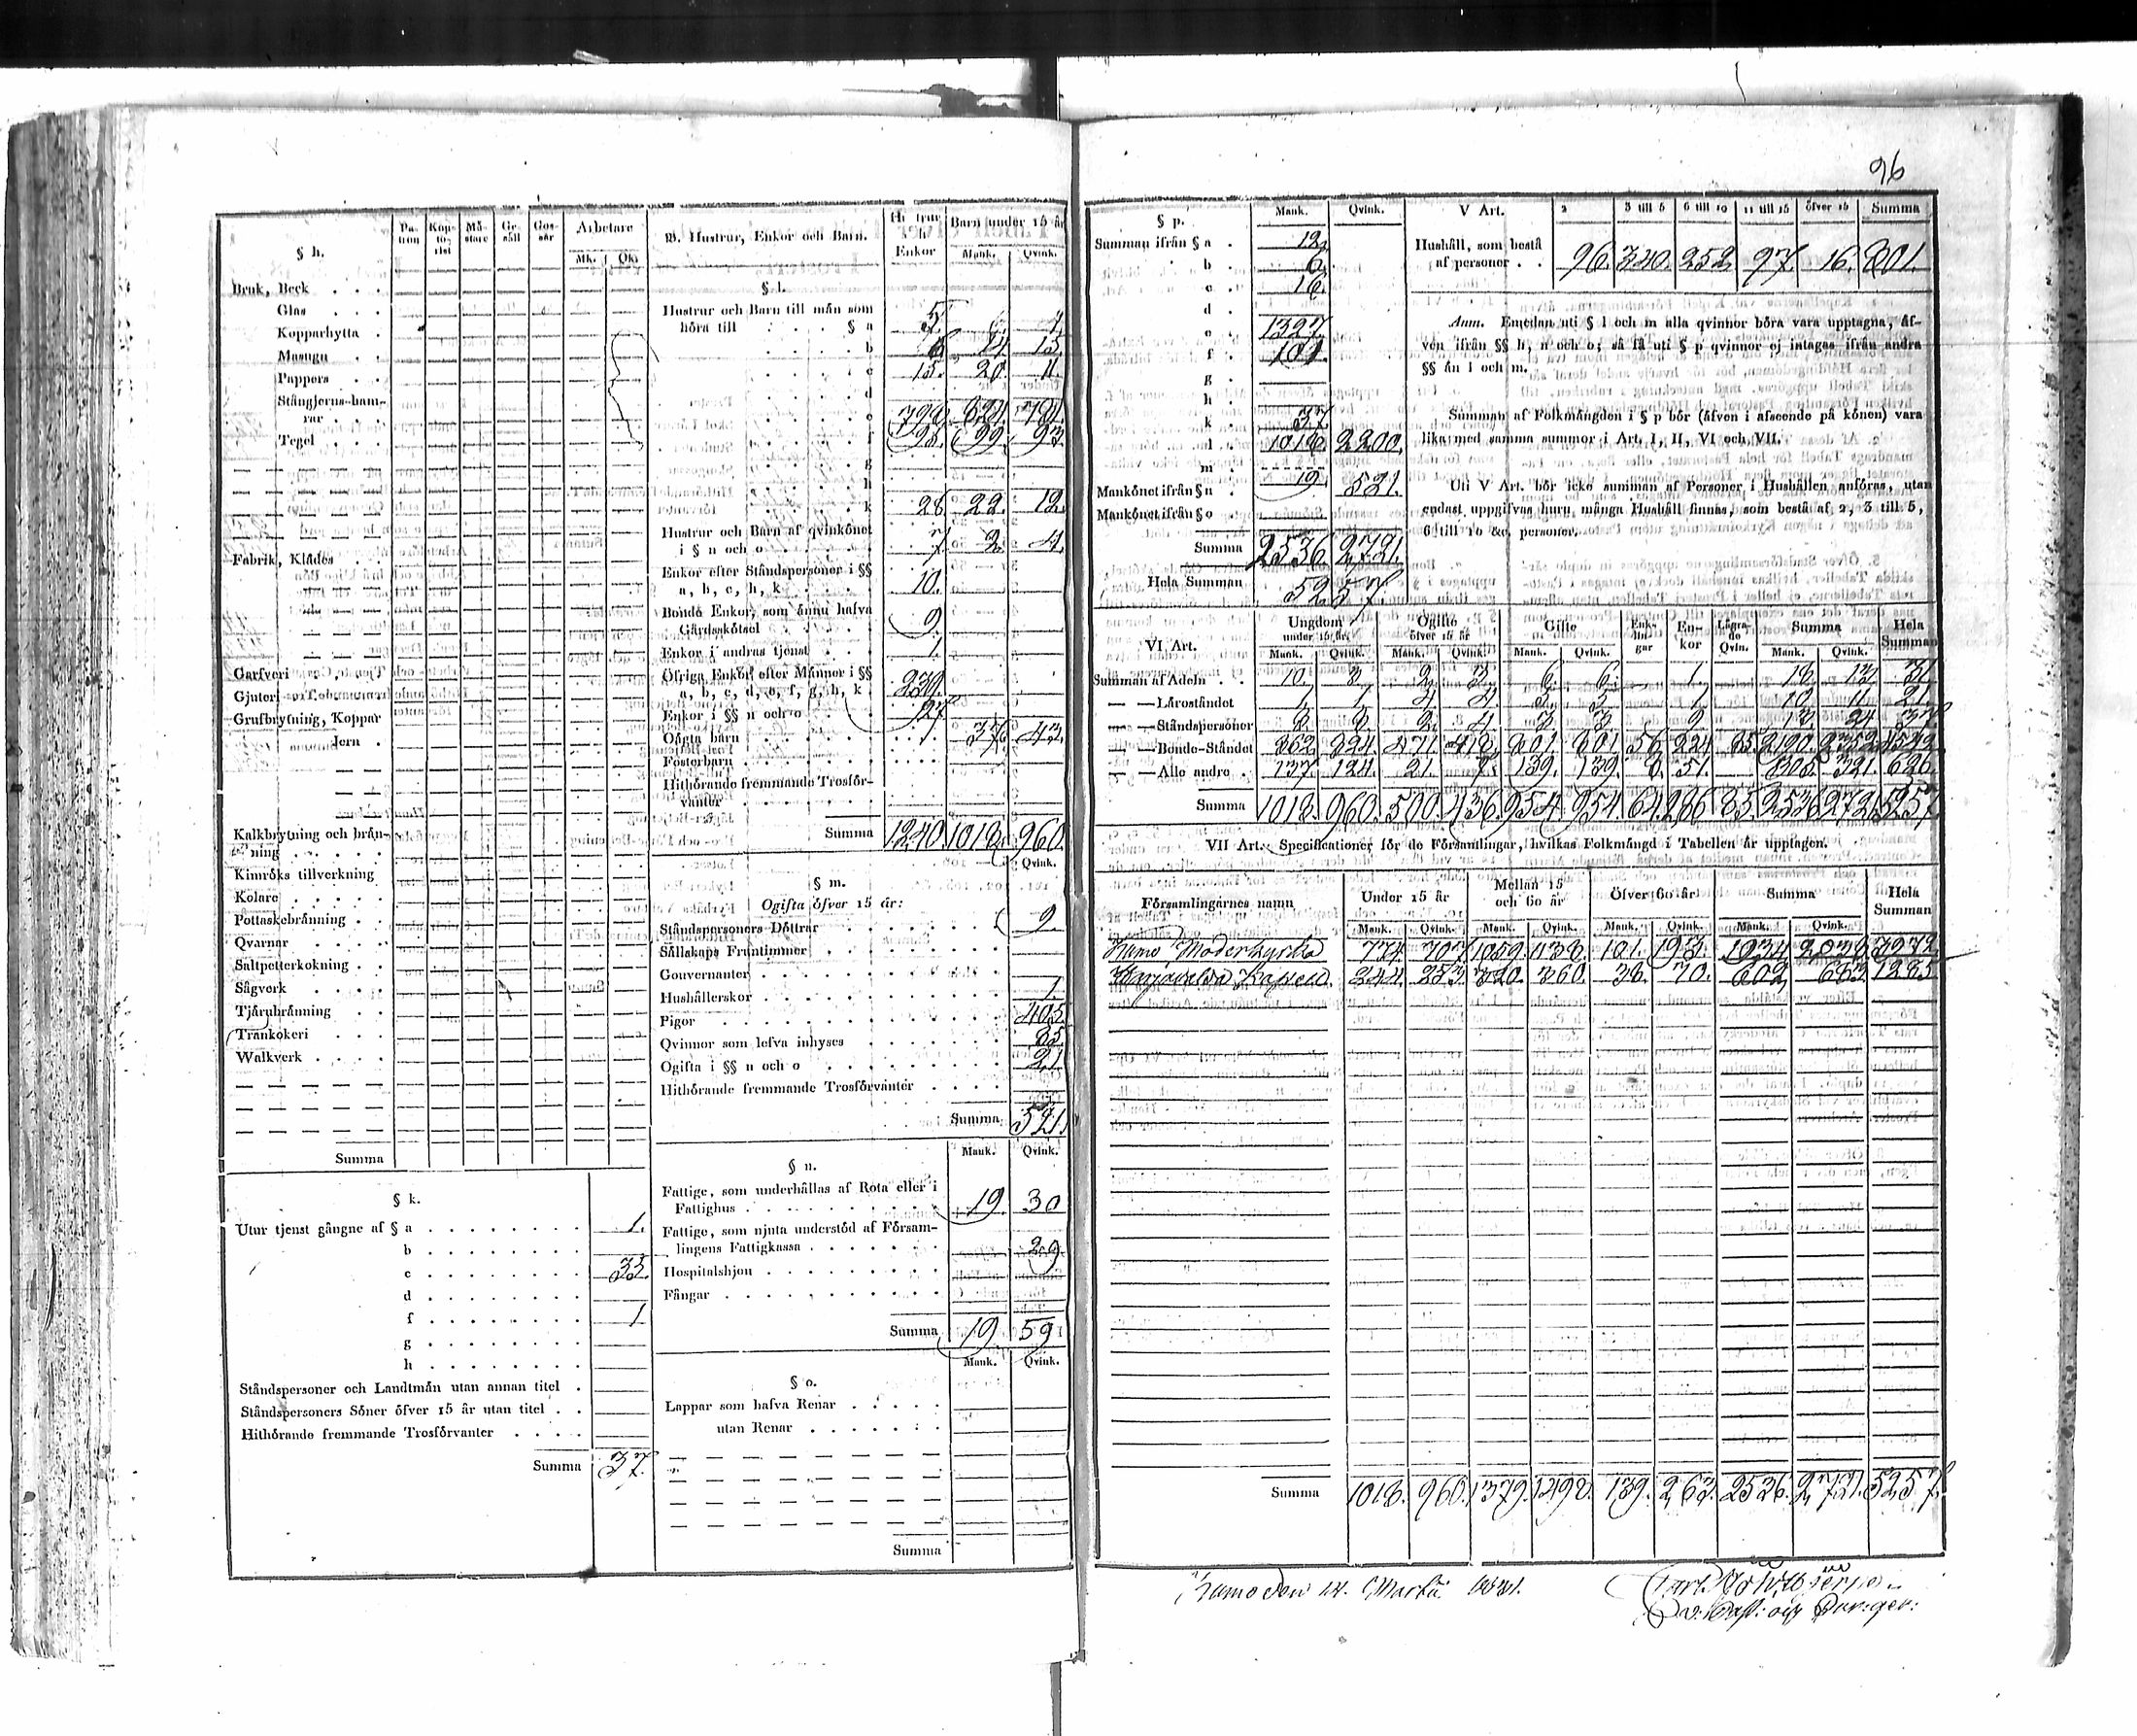 96
§ h.
Pa-tron Kon-to-rist Mä-stare Ge-säll Gos-sar Arbetare
Mk. Qk.
Bruk, Beck . . .
Glas . . .
Kopparhytta .
Masugn . .
Pappers . .
Stångjerns-ham-
rar . . .
Tegel . . .
Fabrik, Klädes . .
Garfveri
Gjuteri
Grufbrytning, Koppar
Jern .
Kalkbrytning och brän-
ning . . . .
Kimröks tillverkning
Kolare . . . .
Pottaskebränning . .
Qvarnar . . . .
Saltpetterkokning . .
Sågverk . . . .
Tjärubränning . .
Trankokeri . . .
Walkverk . . . .
Summa
§ k.
Utur tjenst gångne af § a . . . . . . . . 1.
b . . . . . . . .
c . . . . . . . . 35.
d . . . . . . . .
f . . . . . . . . 1.
g . . . . . . . .
h . . . . . . . .
Ståndspersoner och Landtmän utan annan titel .
Ståndspersoners Söner öfver 15 år utan titel . .
Hithörande fremmande Trosförvanter . . . .
Summa 37.
B. Hustrur, Enkor och Barn.
Enkor
Barn under 15 år
Mank. Qvink.
§ l.
Hustrur och Barn till män som
höra till . . . . § a 5.
b 6 14 13.
c 13. 20. 11.
d
e 798. 824. 784.
f 98. 99. 93.
g
h
k 28 22. 12.
Hustrur och Barn af qvinkönet
i § n och o . . . . . 7 2. 4.
Enkor efter Ståndspersoner i §§
a, b, c, h, k . . . . 10.
Bonde Enkor, som ännu hafva
Gårdsskötsel . . . . 9.
Enkor i andras tjenst . . . 1.
Öfriga Enkor efter Männer i §§
a, b, c, d, e, f, g, h, k 239.
Enkor i §§ n och o . . . . 27.
Oägta barn . . . . . . 37. 43.
Fosterbarn . . . . . .
Hithörande fremmande Trosför-
vanter . . . . . . .
Summa 1240. 1018. 960.
Qvink.
§ m.
Ogifta öfver 15 år:
Ståndspersoners Döttrar . . . . . . . 9.
Sällskaps Fruntimmer . . . . . . . .
Gouvernanter . . . . . . . . . .
Hushållerskor . . . . . . . . . . 1.
Pigor . . . . . . . . . . . . 405.
Qvinnor som lefva inhyses . . . . . . . 85.
Ogifta i §§ n och o . . . . . . . . . 21
Hithörande fremmande Trosförvanter . . . .
Summa 521.
Mank. Qvink.
§ n.
Fattige, som underhållas af Rota eller i
Fattighus . . . . . . . . . . 19. 30
Fattige, som njuta understöd af Försam-
lingens Fattigkassa . . . . . . . 29
Hospitalshjon . . . . . . . . .
Fångar . . . . . . . . . . .
Summa 19. 59.
Mank. Qvink.
§ o.
Lappar som hafva Renar . . . . .
utan Renar . . . . . . .
Summa
§ p. Mank. Qvink.
Summan ifrån § a . 12.
b . 6.
c . 16.
d .
e . 1327.
f . 101.
g .
h .
k . 37.
l . 1018. 2200.
m 521.
Mankönet ifrån § n . 19.
Mankönet ifrån § o .
Summa 2536. 2721.
Hela Summan 5257.
V Art. 2 3 till 5 6 till 10 11 till 15 öfver 15 Summa
Hushåll, som bestå
af personer . . 96. 340. 252. 97. 16. 801.
Anm. Emedan uti § l och m alla qvinnor böra vara upptagna, äf-
ven ifrån §§ h, n och o; så få uti § p qvinnor ej intagas ifrån andra
§§ än l och m.
Summan af Folkmängden i § p bör (äfven i afseende på könen) vara
lika med samma summor i Art. I, II, VI och VII.
Uti V Art. bör icke summan af Personer i Hushållen anföras, utan
endast uppgifvas huru många Hushåll finnas, som bestå af 2, 3 till 5,
6 till 10 &c. personer.
VI Art. Ungdom under 15 år Ogifte öfver 15 år Gifte Enk-lingar En-kor Lägra-de Qvin. Summa Hela Summan
Mank. Qvink. Mank. Qvink. Mank. Qvink. Mank. Qvink.
Summan af Adeln . . 10. 3. 2. 3. 6. 6. 1. 18. 13. 31.
— — Läroståndet 1. 1. 4. 4. 5. 5. 1. 10. 11. 21.
— — Ståndspersoner 8. 8. 2. 4. 3. 3. 9. 13. 24. 37.
— — Bonde-Ståndet 862. 824. 471. 418. 801. 801. 56. 224. 85. 2190. 2352. 4542.
— — Alle andre . 137. 124. 21. 7. 139. 139. 8. 51. 305. 321. 626.
Summa 1018. 960. 500. 436. 954. 954. 64. 286. 85. 2536. 2721. 5257.
VII Art. Specificationer för de Församlingar, hvilkas Folkmängd i Tabellen är upptagen.
Församlingarnes namn Under 15 år Mellan 15 och 60 år Öfver 60 år Summa Hela Summan
Mank. Qvink. Mank. Qvink. Mank. Qvink. Mank. Qvink.
Kumo Moderkyrka 774. 707. 1059. 1138. 101. 193. 1934. 2038. 3972.
Kapell. 244. 253. 320. 360. 38. 70. 602. 683. 1285.
Summa 1018. 960. 1379. 1498. 139. 263. 2536. 2721. 5257.
Kumo den 14. Martii 1831.